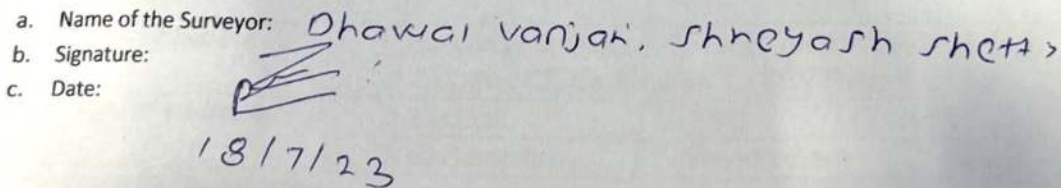 a. Name of the Surveyor: Dhawal vanjari, Shreyash Shetty
b. Signature:
c. Date:
18/7/23